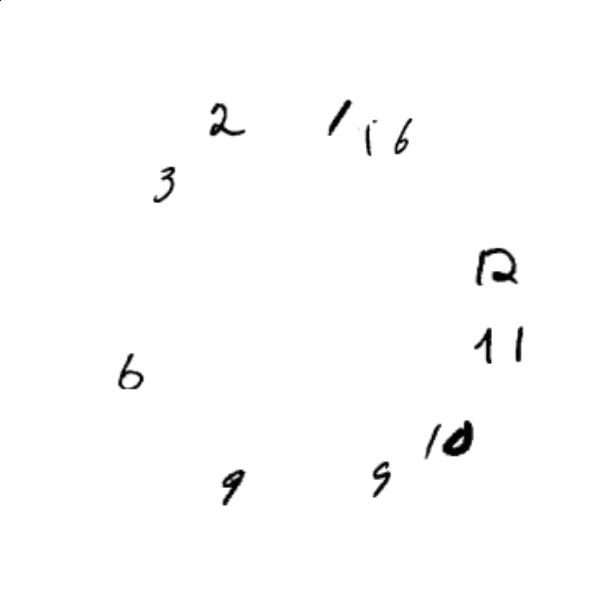 2 1 16
3
12
11
6
10
9 9